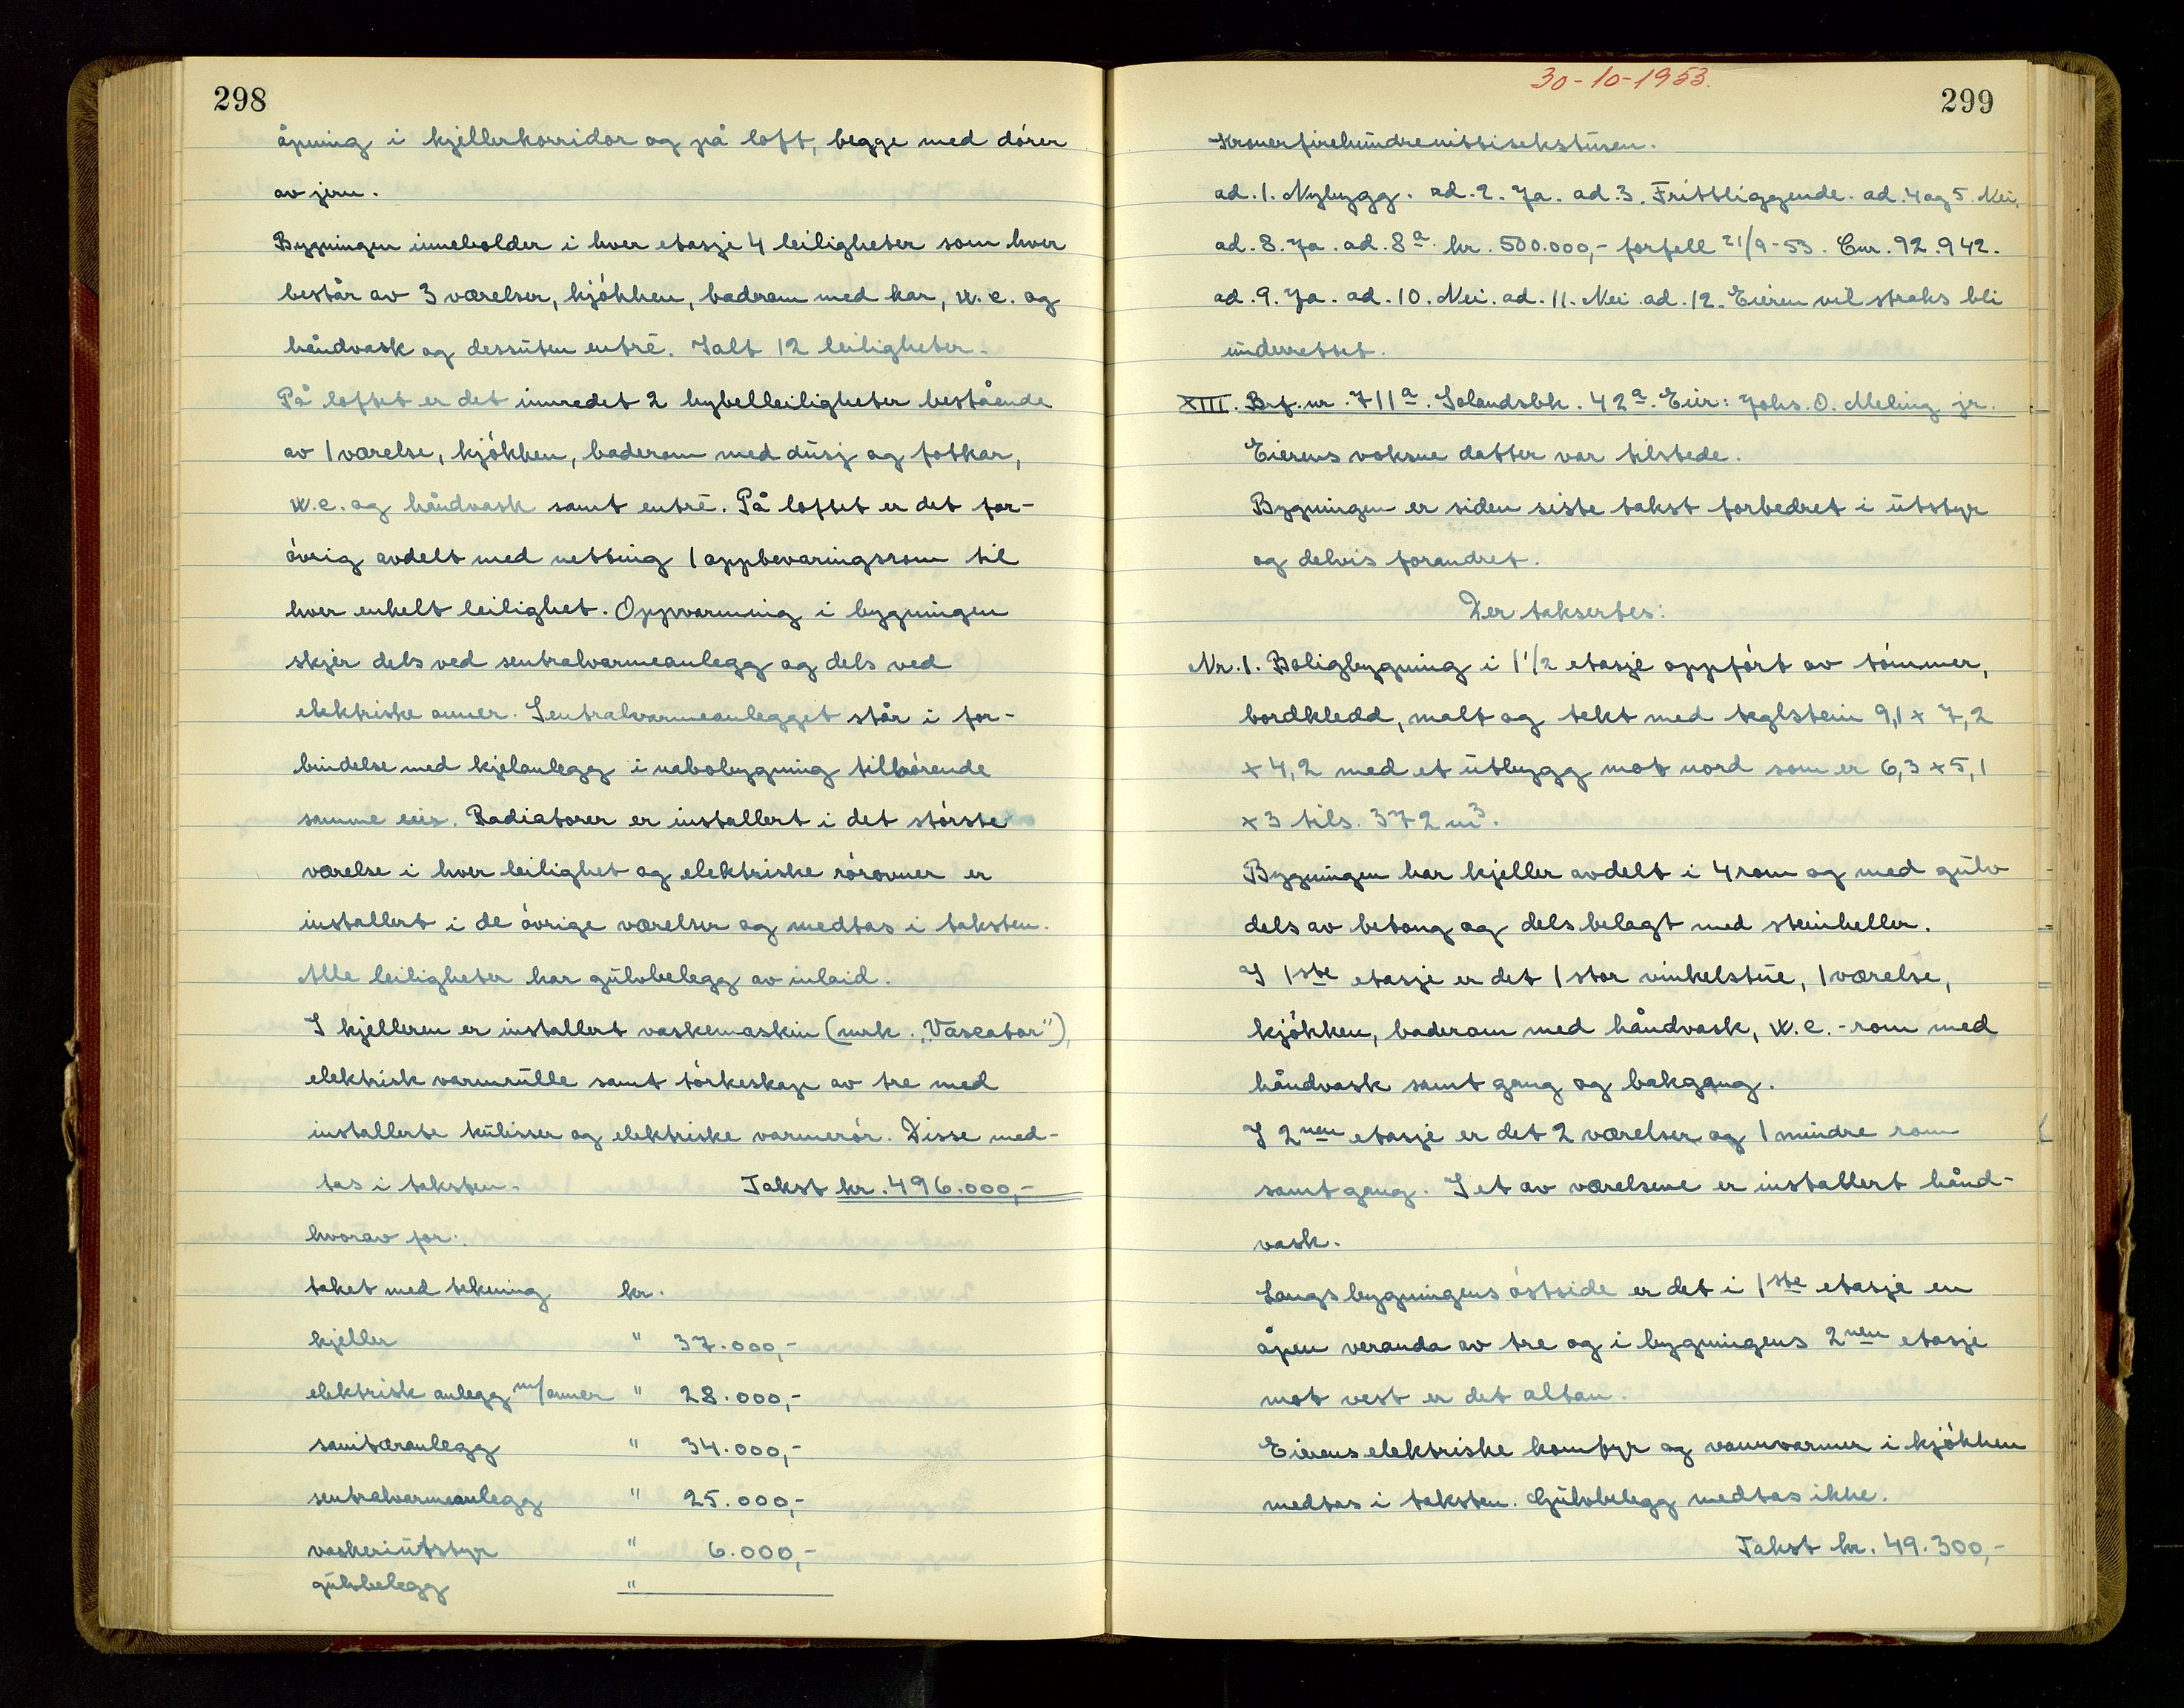 298
åpning i kjellerkorridor og på loft, begge med dører
av jern.
Bygningen inneholder i hver etasje 4 leiligheter som hver
består av 3 værelser, kjøkken, baderom med kar, w.c. og
håndvask og dessuten entré. Ialt 12 leiligheter.
På loftet er det innredet 2 hybelleiligheter bestående
av 1 værelse, kjøkken, baderom med dusj og fotkar,
w.c. og håndvask samt entré. På loftet er det for-
øvrig avdelt med netting 1 oppbevaringsrom til
hver enkelt leilighet. Oppvarming i bygningen
skjer dels ved sentralvarmeanlegg og dels ved
elektriske ovner. Sentralvarmeanlegget står i for-
bindelse med kjelanlegg i nabobygning tilhørende
samme eier. Radiatorer er installert i det største
værelse i hver leilighet og elektriske rørovner er
installert i de øvrige værelser og medtas i taksten.
Alle leiligheter har gulvbelegg av inlaid.
I kjelleren er installert vaskemaskin (mrk. „Vascator"),
elektrisk varmrulle samt tørkeskap av tre med
installerte kulisser og elektriske varmerør. Disse med-
tas i taksten. Takst kr. 496.000,-
hvorav for:
taket med tekning kr.
kjeller " 37.000,-
elektrisk anlegg m/ovner " 28.000,-
sanitæranlegg " 34.000,-
sentralvarmeanlegg " 25.000,-
vaskeriutstyr " 6.000,-
gulvbelegg "
30-10-1953.
299
Kronerfirehundrenittisekstusen.
ad. 1. Nybygg. ad. 2. Ja. ad. 3. Frittliggende. ad. 4 og 5. Nei.
ad. 8. Ja. ad. 8a. kr. 500.000,- forfell 21/9-53. Cnr. 92.942.
ad. 9. Ja. ad. 10. Nei. ad. 11. Nei. ad. 12. Eieren vil straks bli
underrettet.
XIII. Brf. nr. 711a. Solandsbk. 42a. Eier: Johs. O. Meling jr.
Eierens voksne datter var tilstede.
Bygningen er siden siste takst forbedret i utstyr
og delvis forandret.
Der taksertes:
Nr. 1. Boligbygning i 1 1/2 etasje oppført av tømmer,
bordkledd, malt og tekt med teglstein 9,1 x 7,2
x 4,2 med et utbygg mot nord som er 6,3 x 5,1
x 3 tils. 372 m³.
Bygningen har kjeller avdelt i 4 rom og med gulv
dels av betong og dels belagt med steinheller.
I 1ste etasje er det 1 stor vinkelstue, 1 værelse,
kjøkken, baderom med håndvask, w.c.-rom med
håndvask samt gang og bakgang.
I 2nen etasje er det 2 værelser og 1 mindre rom
samt gang. I et av værelsene er installert hånd-
vask.
Langs bygningens østside er det i 1ste etasje en
åpen veranda av tre og i bygningens 2nen etasje
mot vest er det altan.
Eierens elektriske komfyr og vannvarmer i kjøkken
medtas i taksten. Gulvbelegg medtas ikke.
Takst kr. 49.300,-